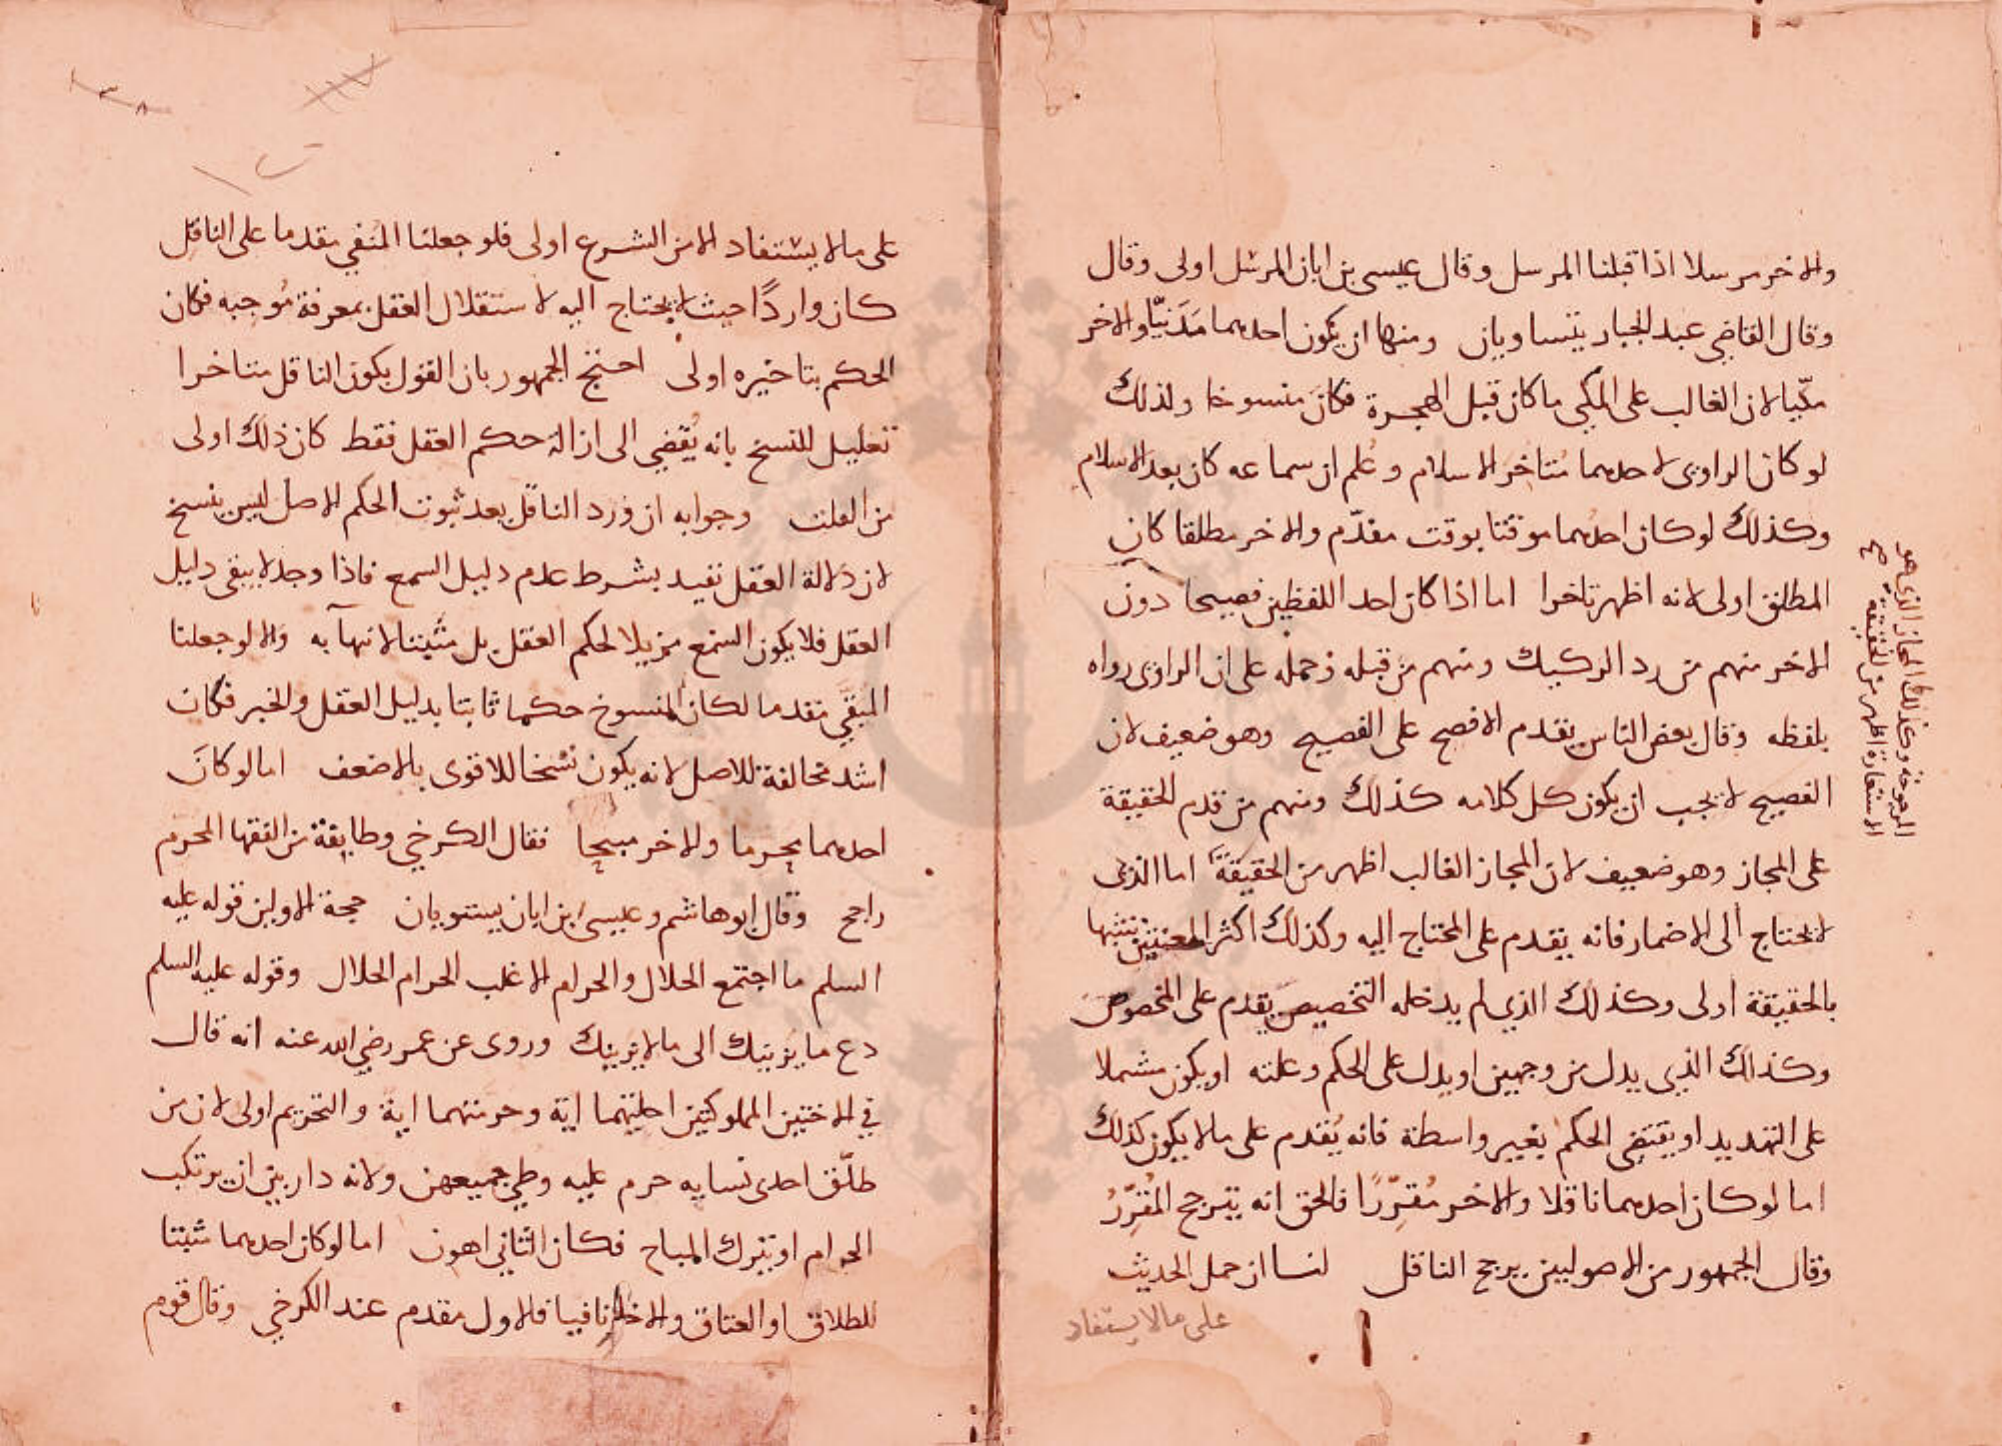 والاخر مرسلا اذا قبلنا المرسل وقال عيسى بن ابان المرسل اولى وقال
وقال القاضي عبد الجبار يتساويان ومنها ان يكون احدهما مَدَنيًّا والاخر
مكّيا لان الغالب على المكي ما كان قبل الهجرة فكان منسوخا ولذلك
لو كان الراوي لاحدهما متاخر الاسلام وعُلم ان سماعه كان بعد الاسلام
وكذلك لو كان احدهما موقتا بوقت مقدّم والاخر مطلقا كان
المطلق اولى لانه اظهر تاخرا اما اذا كان احد اللفظين فصيحا دون
الاخر منهم من رد الركيك ومنهم من قبله وحمله على ان الراوي رواه
بلفظه وقال بعض الناس يقدم الافصح على الفصيح وهو ضعيف لان
الفصيح لا يجب ان يكون كل كلامه كذلك ومنهم من قدم الحقيقة
على المجاز وهو ضعيف لان المجاز الغالب اظهر من الحقيقة اما الذي
لا يحتاج الى الاضمار فانه يقدم على المحتاج اليه وكذلك اكثر المعنيين
بالحقيقة اولى وكذلك الذي لم يدخله التخصيص يقدم على المخصوص
وكذلك الذي يدل من وجهين او يدل على الحكم وعلته او يكون مشملا
على التهديد او يقتضي الحكم بغير واسطة فانه يُقدم على ما لا يكون كذلك
اما لو كان احدهما ناقلا والاخر مُقرِّرًا فالحق انه يترجح المُقرِّرُ
وقال الجمهور من الاصوليين يرجح الناقل لنا ان حمل الحديث
على مالا يستفاد
المرجوحة وكذلك المجاز الذي هو
الاستعارة اظهر من الحقيقة صح
على ما لا يستفاد الا من الشرع اولى فلو جعلنا المنفي مقدما على الناقل
كان واردًا حيث لا يحتاج اليه لاستقلال العقل بمعرفة مُوجبه فكان
الحكم بتاخيره اولى احتج الجمهور بان القول بكون الناقل متاخرا
تعليل للنسخ بانه يُفضي الى ازالة حكم العقل فقط كان ذلك اولى
من القلت وجوابه ان ورد الناقل بعد ثبوت الحكم الاصل ليس بنسخ
لان دلالة العقل تفيد بشرط عدم دليل السمع فاذا وجد لا يبقى دليل
العقل فلا يكون السمع مزيلا لحكم العقل بل مثبتا لانتهآيه والا لو جعلنا
المبقي مقدما لكان المنسوخ حكما ثابتا بدليل العقل والخبر فكان
اشد مخالفة للاصل لانه يكون نسخا للاقوى بالاضعف اما لو كان
احدهما محرما والاخر مبيحا فقال الكرخي وطايفة من الفقها المحرم
راجح وقال ابو هاشم وعيسى بن ابان يستويان حجة الاولين قوله عليه
السلم ما اجتمع الحلال والحرام الا غلب الحرام الحلال وقوله عليه السلم
دع ما يريبك الى ما لا يريبك وروى عن عمر رضي الله عنه انه قال
في الاختين المملوكتين احلتهما اية وحرمتهما اية والتحريم اولى لان من
طلّق احدى نسايه حرم عليه وطي جميعهن ولانه دار بين ان يرتكب
الحرام او يترك المباح فكان الثاني اهون اما لو كان احدهما مثبتا
للطلاق او العتاق والاخر نافيا فالاول مقدم عند الكرخي وقال قوم